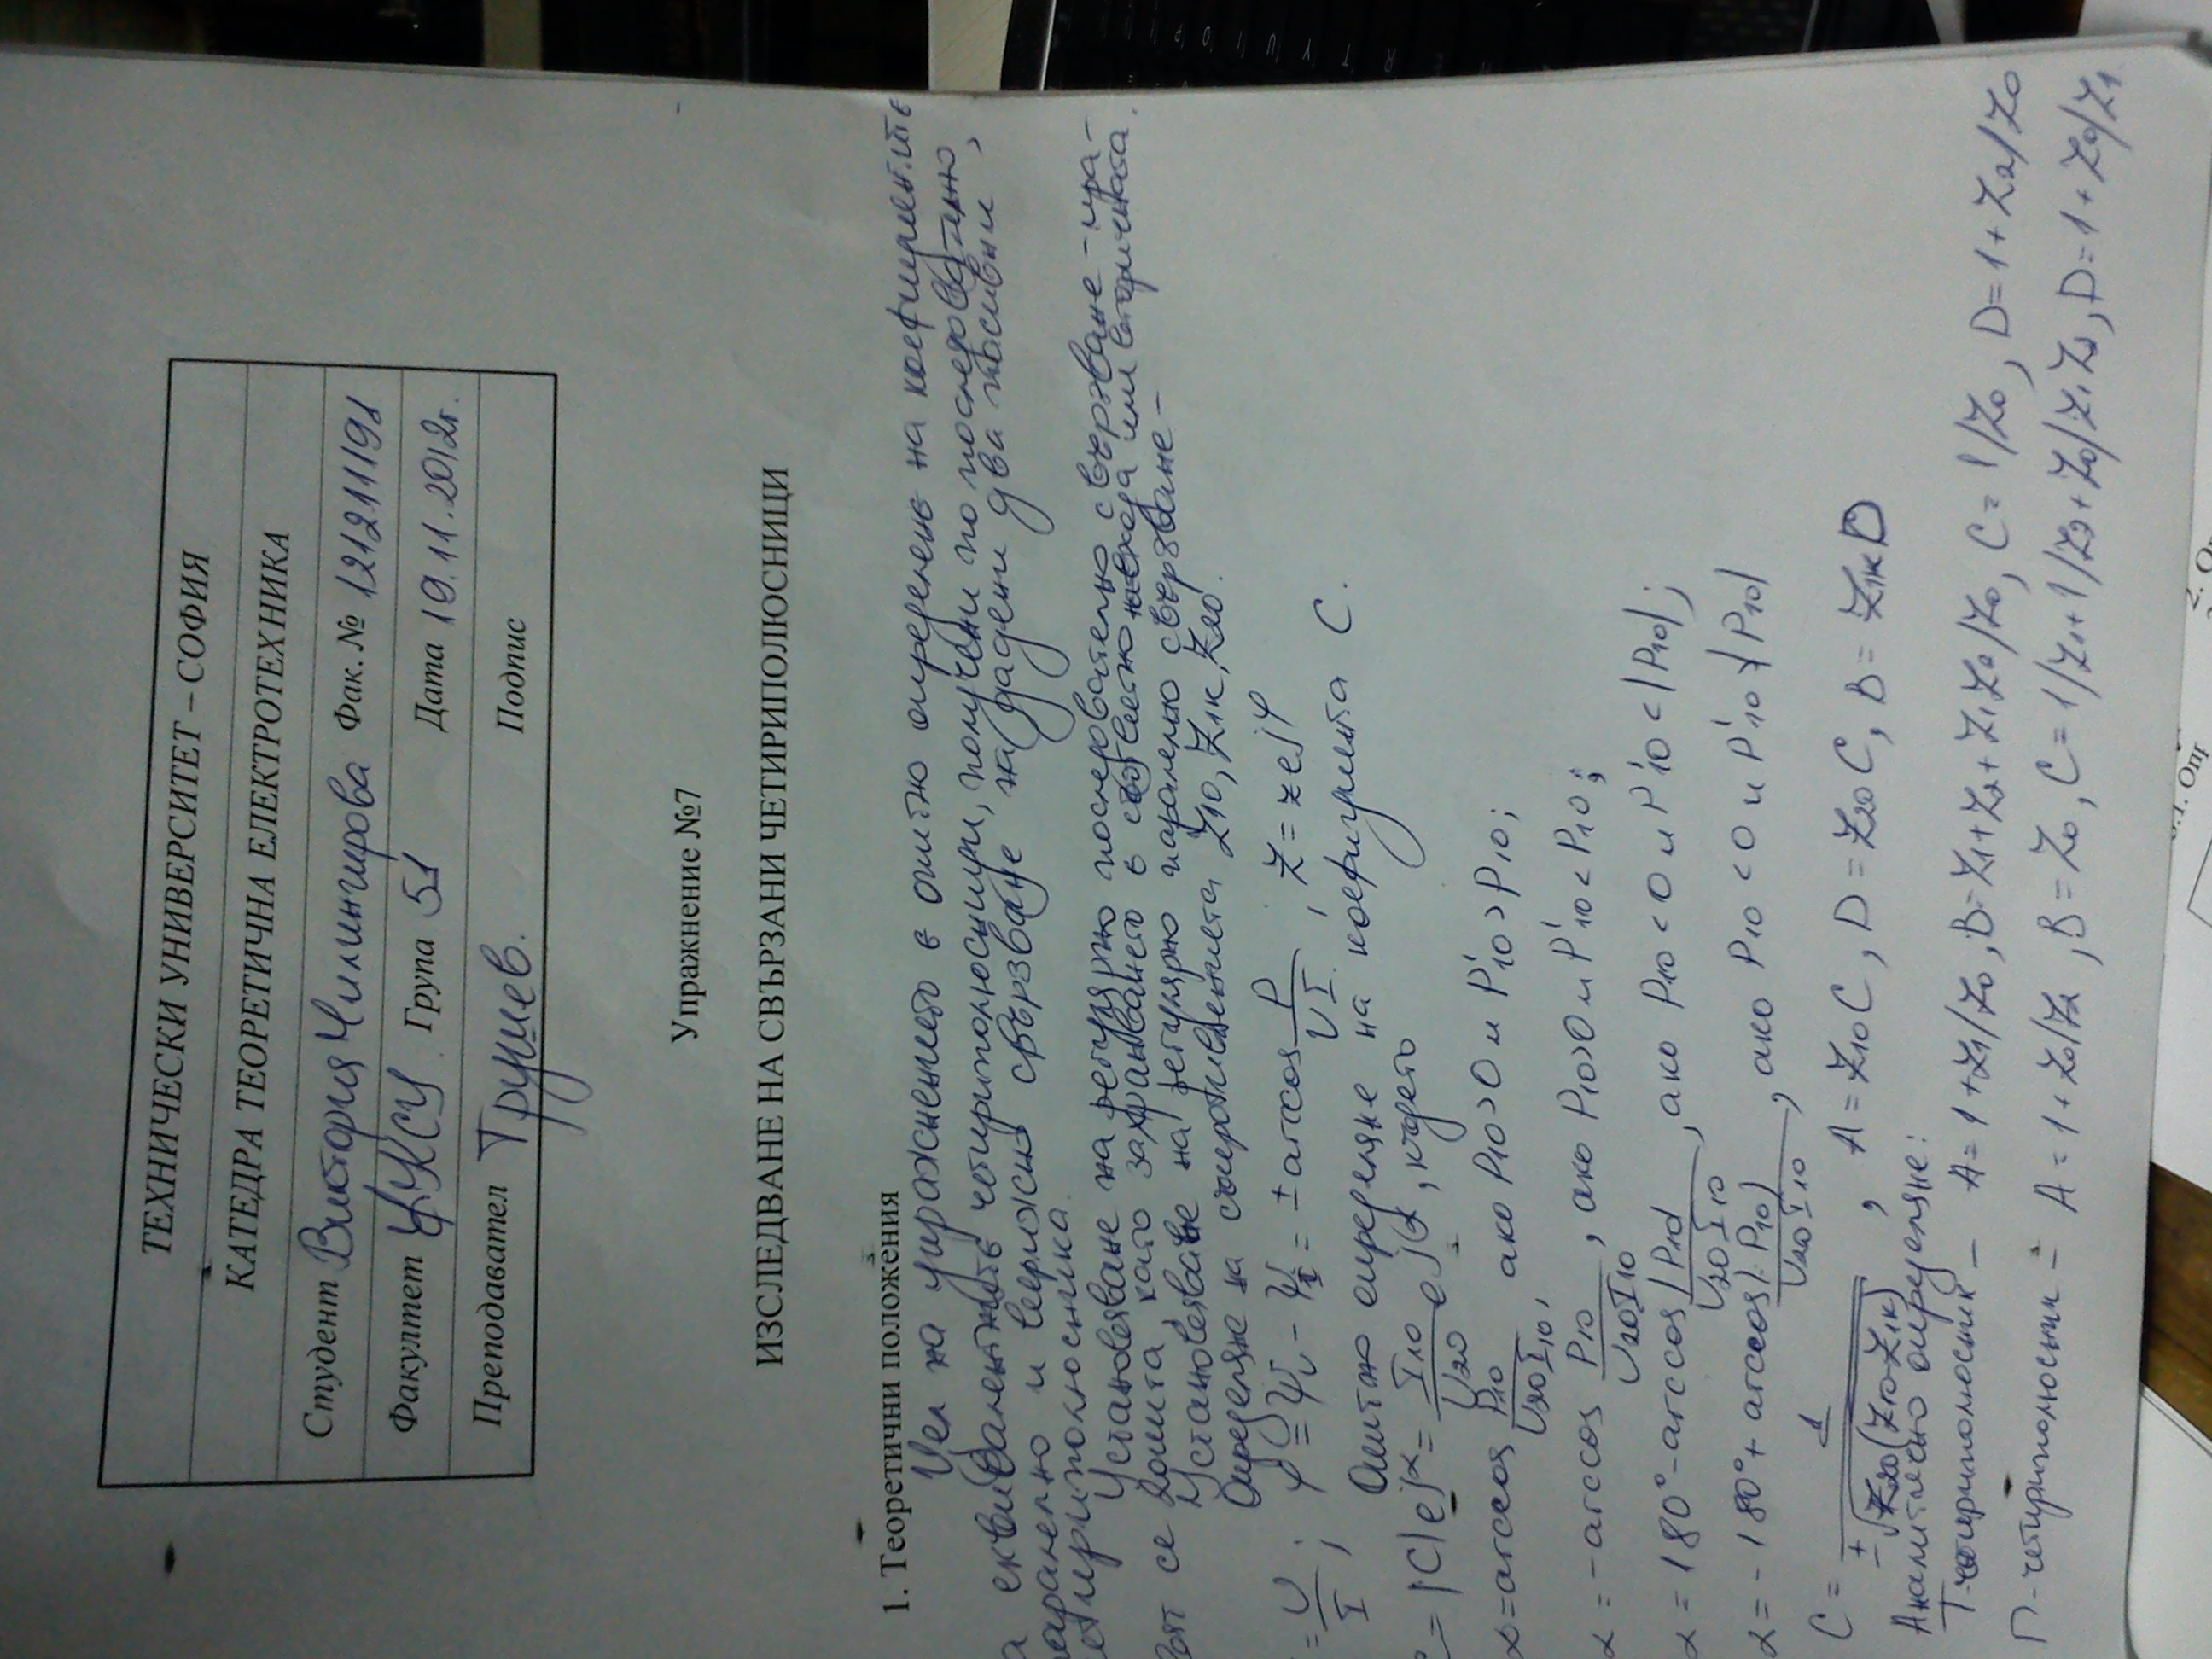 ТЕХНИЧЕСКИ УНИВЕРСИТЕТ – СОФИЯ
КАТЕДРА ТЕОРЕТИЧНА ЕЛЕКТРОТЕХНИКА
Студент Виктория Чилингирова Фак. № 121211191
Факултет ФКСУ Група 51 Дата 19.11.2012г.
Преподавател Трушев. Подпис
Упражнение №7
ИЗСЛЕДВАНЕ НА СВЪРЗАНИ ЧЕТИРИПОЛЮСНИЦИ
1. Теоретични положения
Цел на упражнението е опитно определяне на коефициентите
на еквивалентните четириполюсници, получени по последователно,
паралелно и верижно свързване на дадени два пасивни
четириполюсника.
Установяване на регулярно последователно свързване -
като захранването е
Установяване на регулярно паралелно свързване -
Определяне на съпротивленията Z10, Z1K, Z20.
= U/I ; φ = ψU - ψI = ± arccos P/UI , Z = z e^jφ
Опитно определяне на коефициента C.
C = |C|e^jα = I10/U20 e^jα, където
α = arccos P10/U20I10, ако P10>0 и P'10>P10;
α = -arccos P10/U20I10, ако P10>0 и P'10<P10;
α = 180° - arccos |P10|/U20I10, ако P10<0 и P'10<|P10|;
α = -180° + arccos |P10|/U20I10, ако P10<0 и P'10 |P10|
C = 1/±√Z20(Z10-Z1K) , A = Z10C, D = Z20C, B = Z1KD
Аналитично определяне:
Т-четириполюсник - A = 1+Z1/Z0, B=Z1+Z2+Z1Z2/Z0, C=1/Z0, D=1+Z2/Z0
П-четириполюсник - A = 1+Z0/Z2, B=Z0, C=1/Z1+1/Z2+Z0/Z1Z2, D=1+Z0/Z1